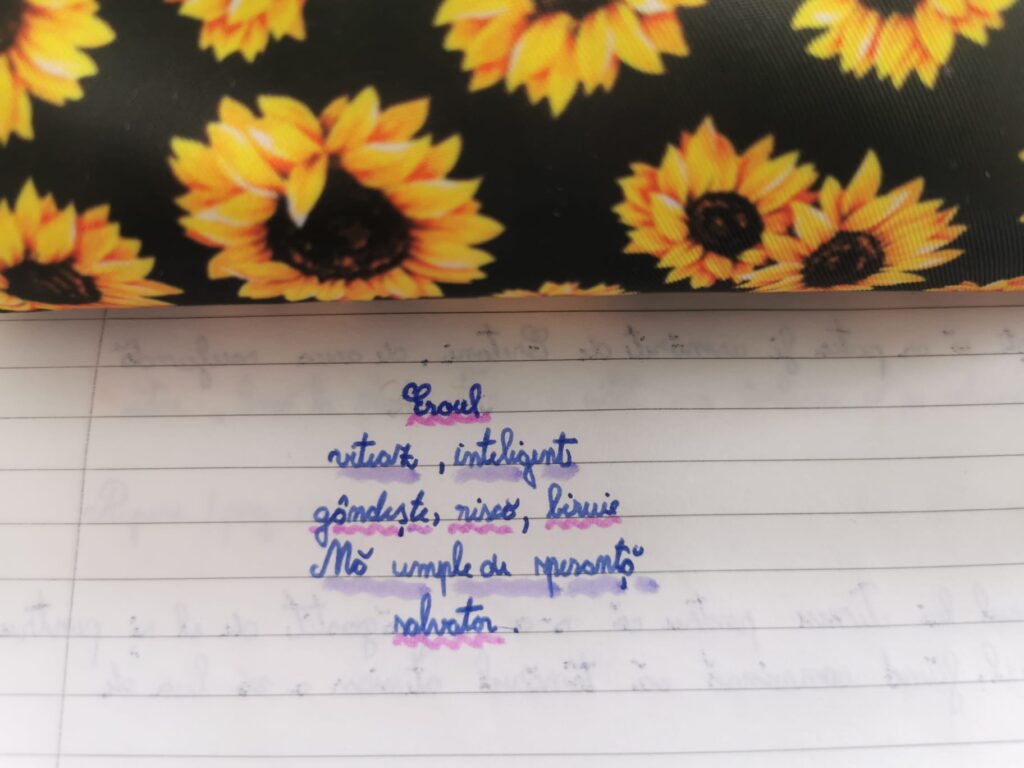 Eroul
viteaz, inteligent
gândește, riscă, biruie
Mă umple de speranță
salvator.